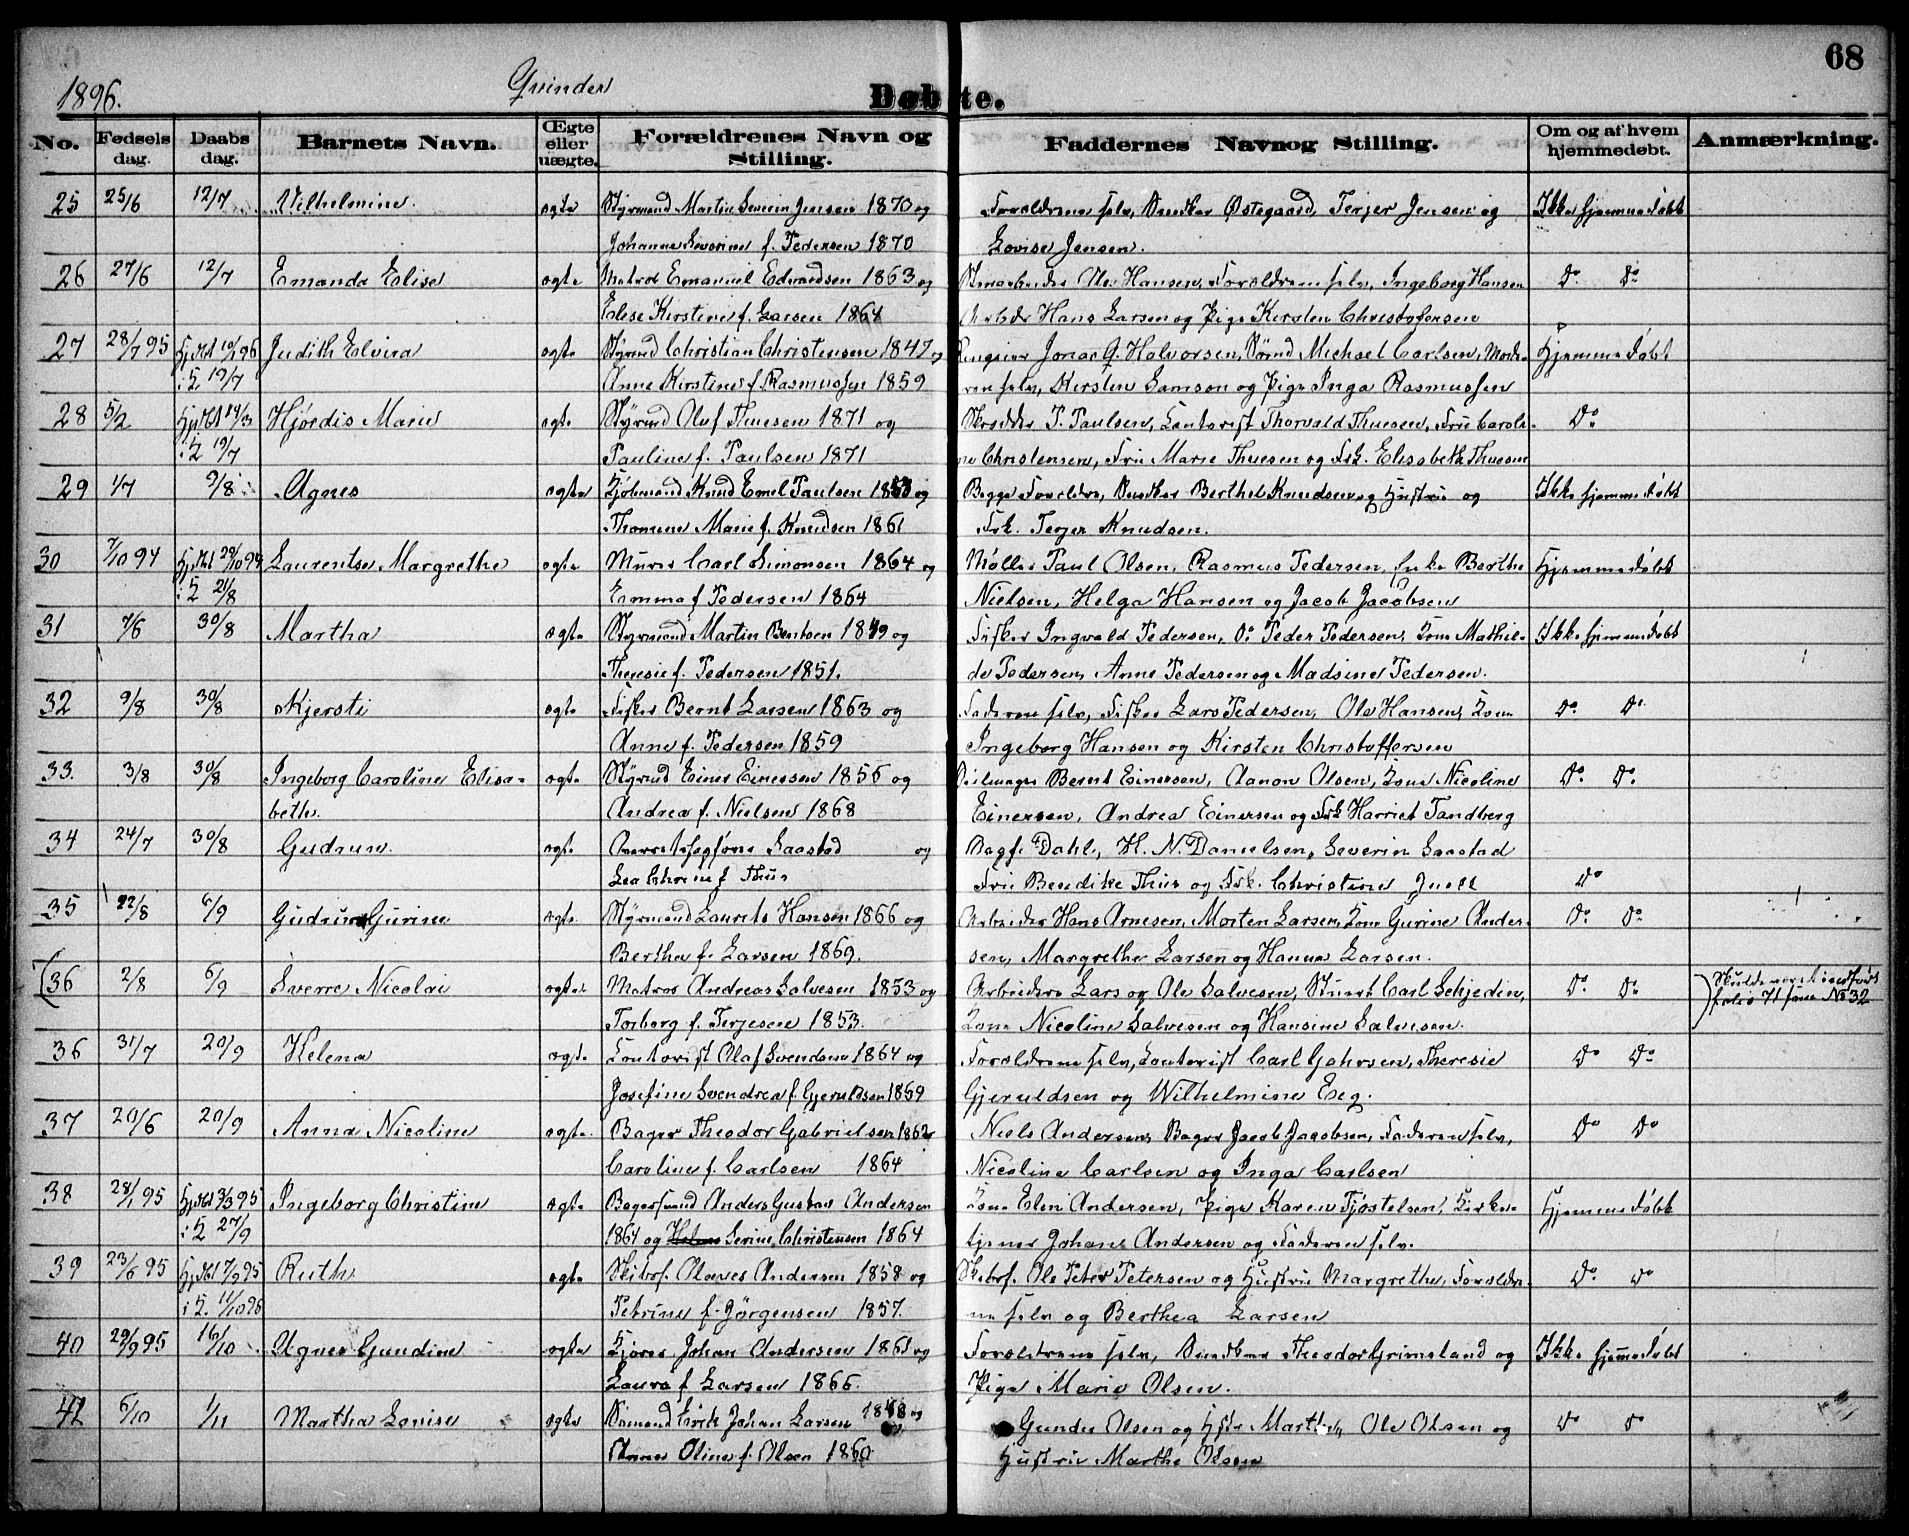 68
1896. Qvinder
Døbte.
No. Fødsels dag. Daabs dag. Barnets Navn. Œgte eller uægte. Forældrenes Navn og Stilling. Faddernes Navn og Stilling. Om og af hvem hjemmedøbt. Anmærkning.
25 25/6 12/7 Vilhelmine. ægte Styrmand Martin Severin Jensen 1870 og Forældrene selv, Østegaard, Terjer Jensen og Ikke hjemmedøbt
Johanne Severine f. Pedersen 1870 Lovise Jensen.
26 27/6 12/7 Emanda Elise ægte Matros Emanuel Edvardsen 1863 og Ole Hansen, Forældrene selv, Ingeborg Hansen Do Do
Elise Kirstine f. Larsen 1864 Arbeider Hans Larsen og Pige Kirsten Christofersen
27 28/7 95 Hjdbt 10/1 96 Judith Elvira ægte Styrmd Christian Christensen 1847 og Jonas G. Halvorsen, Michael Carlsen, Mode- Hjemmedøbt
i K 19/7 Anne Kirstine f. Rasmussen 1859 ren selv, Kirsten Samson og Pige Inga Rasmussen
28 5/2 Hjdbt 14/3 Hjørdis Marie ægte Styrmd Oluf Thuesen 1871 og Skredder P. Paulsen, Kontorist Thorvald Thuesen, Fru Caroli- Do
i K 19/7 Pauline f. Paulsen 1871 ne Christensen, Fru Marie Thuesen og Frk. Elisabeth Thuesen
29 1/7 9/8 Agnes ægte Kjøbmand Knud Emil Paulsen 1853 og Begge Forældre, Berthel Knudsen og Hustru og Ikke hjemmedøbt
Thomine Marie f. Knudsen 1861 Frk. Terjer Knudsen.
30 7/10 94 Hjdbt 29/10 94 Laurentse Margrethe ægte Murer Carl Simonsen 1864 og Møller Paul Olsen, Rasmus Pedersen, Enke Berthe Hjemmedøbt
i K 21/8 Emma f. Pedersen 1864 Nielsen, Helga Hansen og Jacob Jacobsen
31 7/6 30/8 Martha ægte Styrmand Martin Bentsen 1849 og Fisker Ingvald Pedersen, Do Peder Pedersen, Kone Mathil- Ikke hjemmedøbt
Theresie f. Pedersen 1851. de Pedersen, Anne Pedersen og Madsine Pedersen.
32 9/8 30/8 Kjersti ægte Fisker Bernt Larsen 1863 og Faderen selv, Fisker Lars Pedersen, Ole Hansen, Kone Do Do
Anne f. Pedersen 1859 Ingeborg Hansen og Kirsten Christoffersen
33. 3/8 30/8 Ingeborg Caroline Elisa- ægte Styrmd Einer Einersen 1856 og Seilmager Bernt Einersen, Aanon Olsen, Kone Nicoline Do Do
beth. Andrea f. Nielsen 1868 Einersen, Andrea Einersen og Frk Harriet Tandberg
34 24/7 30/8 Gudrun. ægte Saastad og Dahl, H. N. Danielsen, Severin Saastad
f Thue Fru Bendikte Thue og Frk. Christine Juell Do
35 22/8 6/9 Gudrun Gurine ægte Styrmand Laurits Hansen 1866 og Arbeider Hans Arnesen, Morten Larsen, Kone Gurine Ander- Do Do
Berthe f. Larsen 1869. sen, Margrethe Larsen og Hanna Larsen.
(36 2/8 6/9 Sverre Nicolai ægte Matros Andreas Salvesen 1853 og Arbeidere Lars og Ole Salvesen, Stuert Carl Schjedin, Do Do Skulde været indført
Torborg f. Terjesen 1853. Kone Nicoline Salvesen og Hansine Salvesen. folio 71 som No 32
36 31/7 20/9 Helena ægte Kontorist Olaf Svendsen 1864 og Forældrene selv, Kontorist Carl Gahrsen, Theresie Do Do
Josefine Svendrea f. Gjeruldsen 1869 Gjeruldsen og Wilhelmine Eeg.
37 20/6 20/9 Anna Nicoline ægte. Bager Theodor Gabrielsen 1862 Niels Andersen, Bager Jacob Jacobsen, Faderen selv, Do Do
Caroline f. Carlsen 1864 Nicoline Carlsen og Inga Carlsen
38 28/1 95 Hjdbt 3/3 95 Ingeborg Christine ægte Bagersvend Anders Gustav Andersen Kone Elen Andersen, Pige Karen Tjøstelsen, Kirke- Hjemmedøbt
i K 27/9 1864 og Serine Christensen 1864 tjener Johans Andersen og Faderen selv.
39 23/6 95 Hjdbt 7/9 95 Ruth ægte Skibsf. Olaves Andersen 1858 og Skibsf. Ole Peter Petersen og Hustru Margrethe, Forældre- Do Do
i K. 11/10 96 Petrine f. Jørgensen 1857. ne selv og Berthea Larsen
40 29/9 95 16/10 Agnes Gundine ægte Johan Andersen 1861 og Forældrene selv, Theodor Grimsland og Ikke hjemmedøbt
Laura f Larsen 1866. Pige Marie Olsen.
41 6/10 1/11 Martha Lovise ægte Sømand Johan Larsen 1848 og Gunder Olsen og Hstr Marthe, Ole Olsen og Do Do
Anne Oline f. Olsen 1860 Hustru Marthe Olsen